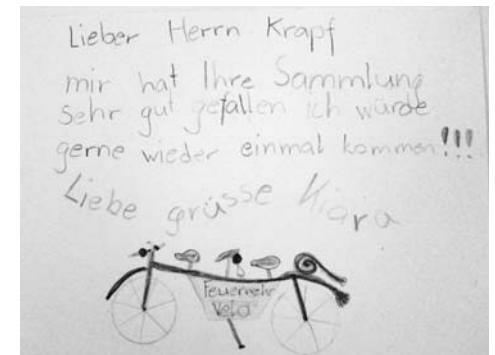 Lieber Herrn Krapf
mir hat Ihre Sammlung
sehr gut gefallen ich würde
gerne wieder einmal kommen!!!
Liebe grüsse Kiara
Feuerwehr
Velo